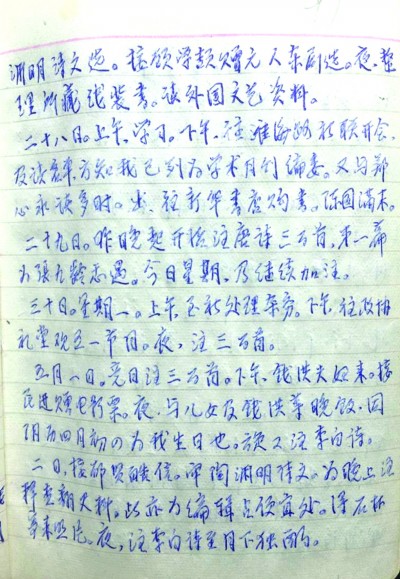 渊明诗文选。接顾学颉赠元人杂剧选。夜，整
理所藏线装书。读外国文艺资料。
二十八日。上午，学习。下午，往淮海路社联开会，
及读名单，方知我已列为学术月刊编委。又与郑
心永谈多时。出，往新华书店购书。陈园满木。
二十九日。昨晚起开始注唐诗三百首，第一篇
为张九龄感遇。今日星期，乃继续加注。
三十日。星期一。上午，至社处理杂务。下午，往政协
礼堂观五一节目。夜，注三百首。
五月一日。竟日注三百首。下午，钱洪夫妇来。接
民进赠电影票。夜，与儿女及钱洪等晚饭，因
阴历四月初四为我生日也。饭又注李白诗。
二日，接郦贤皓信。审陶渊明诗文。为晚上注
释查翻大料。此亦为编辑之便宜处。泽在杯
等来照片。夜，注李白诗至月下独酌。